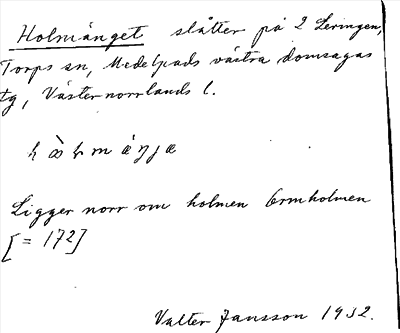 Holmänget slåtter på L Leringen,
Torps sn, Medelpads västra domsagas
tg, Västernorrlands l.
Ligger norr om holmen Ormholmen
[= 172]
Valter Jansson 1932.